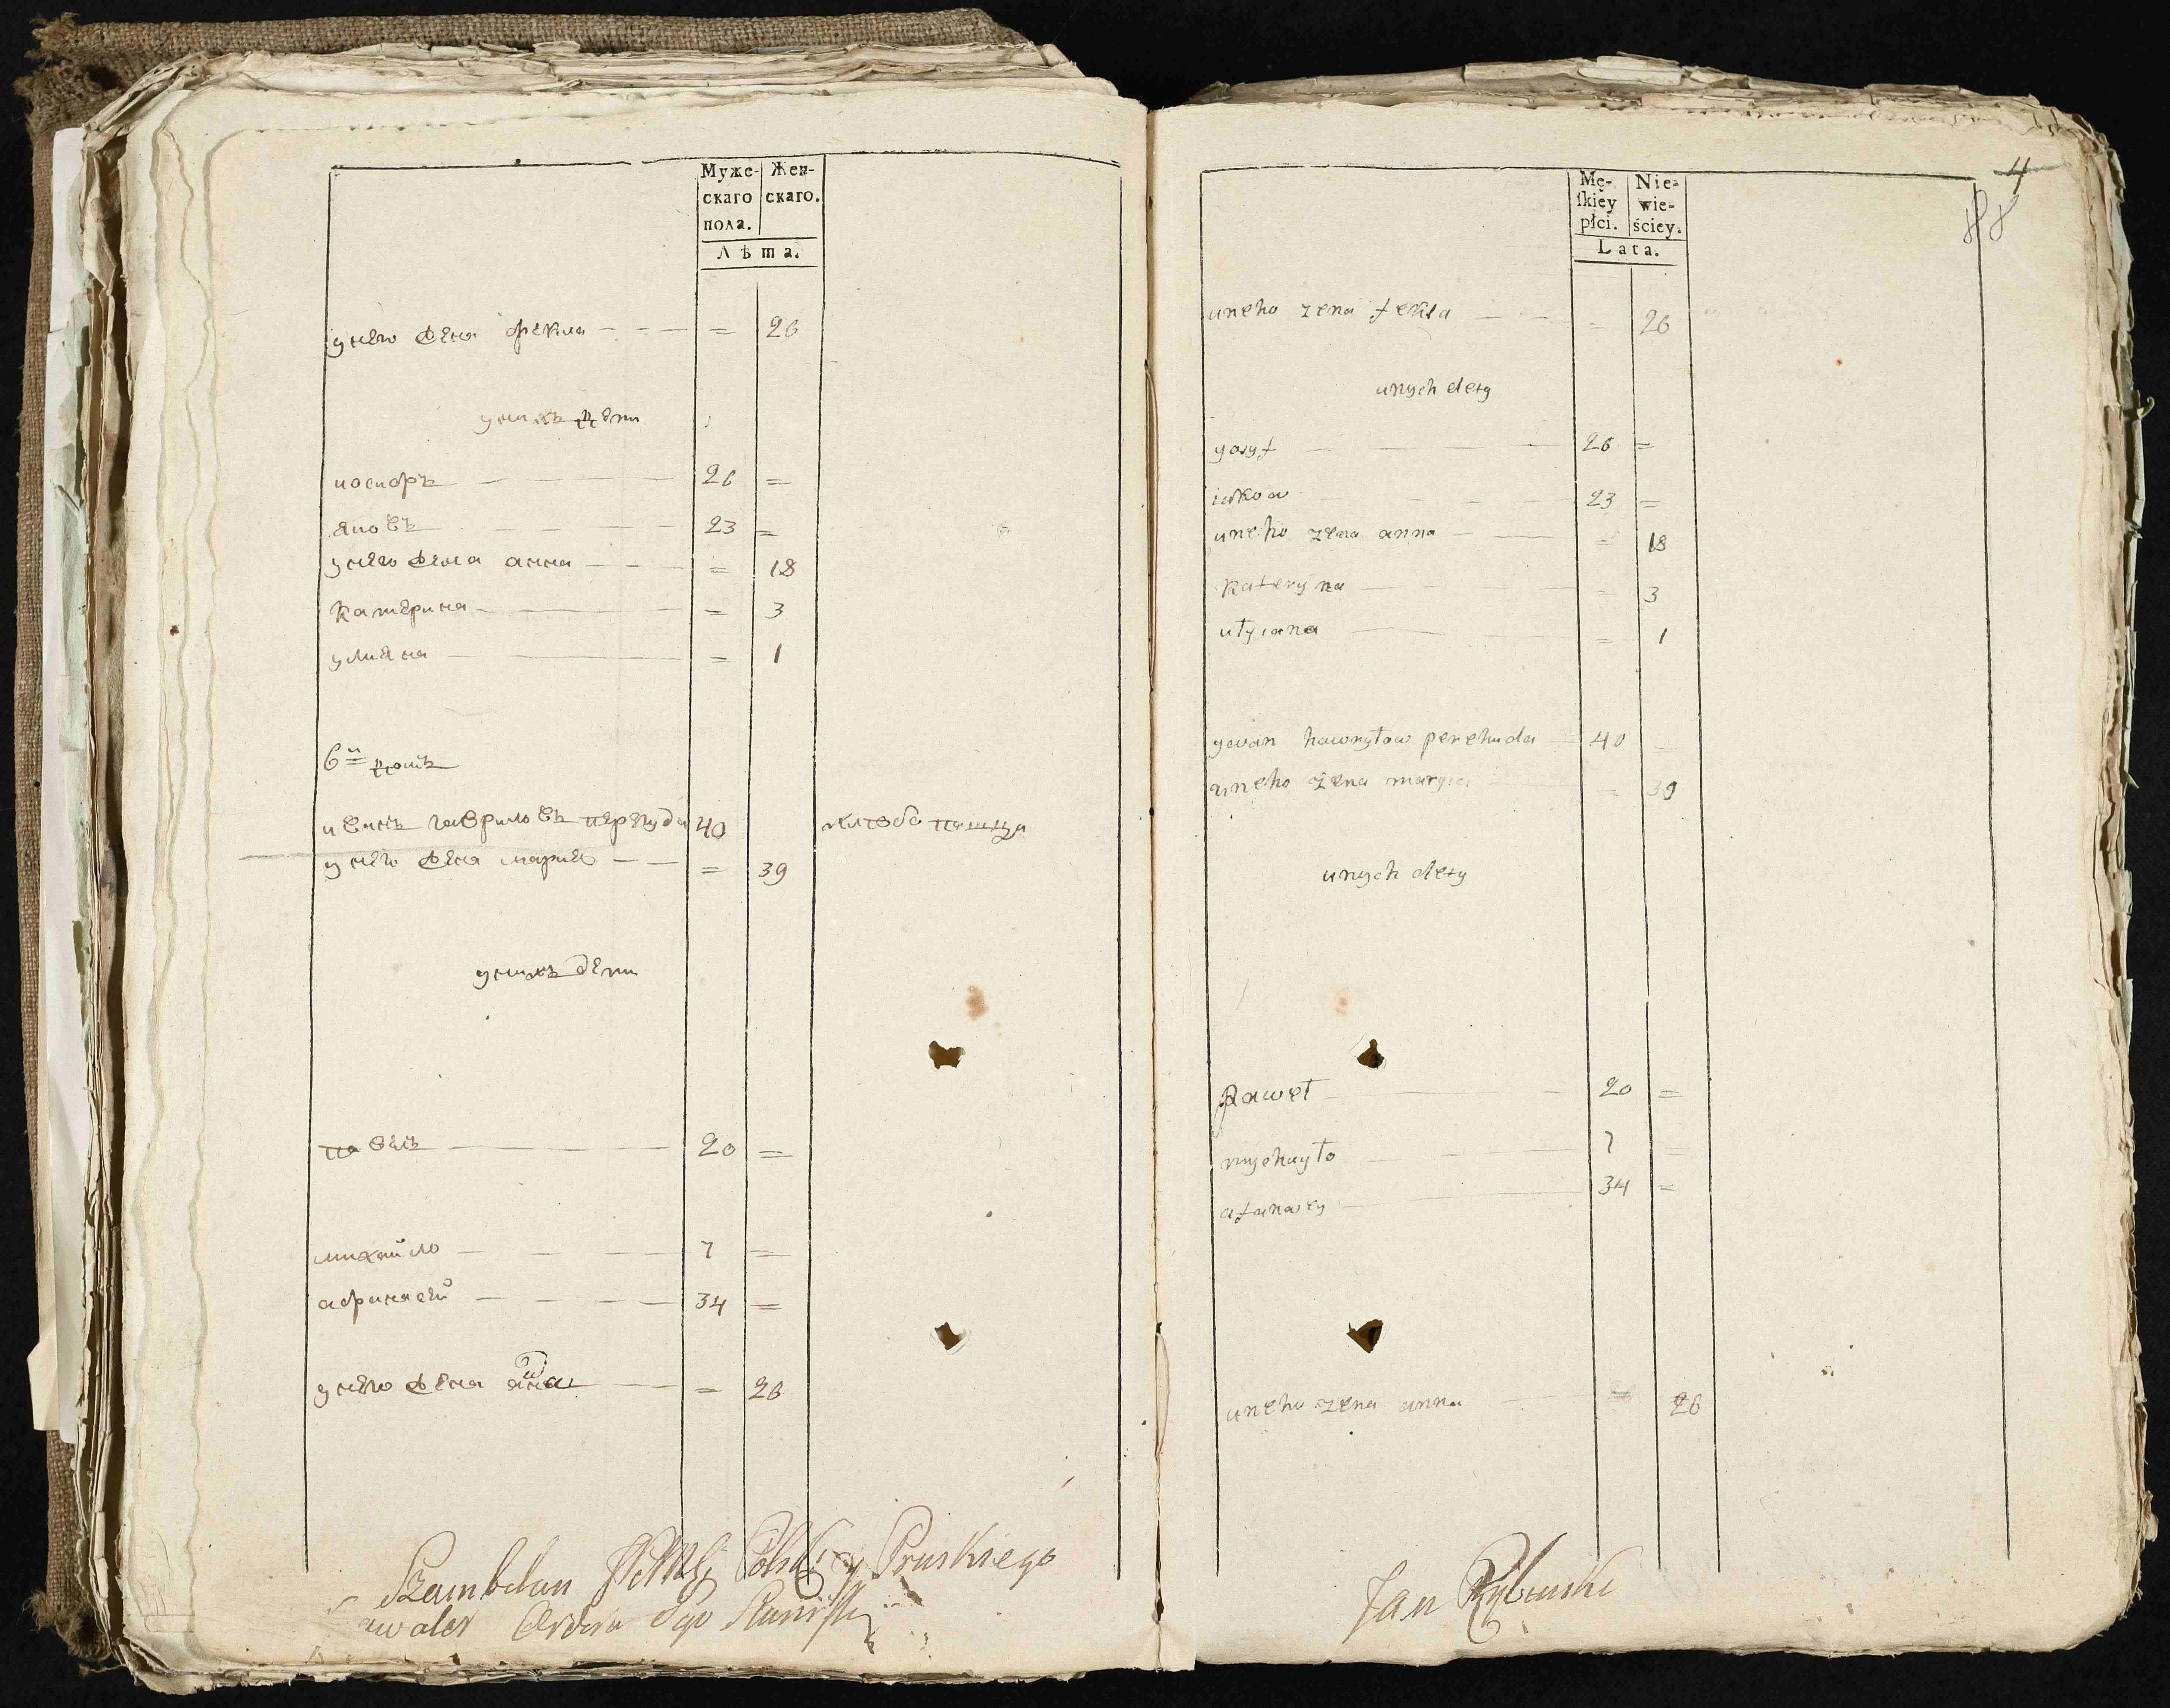 Муже- Жен-
скаго скаго.
пола.
Лѣта.
у него жена фекла = 26
у нихъ дети
иосифъ 26 =
яковъ 23 =
у него жена анна = 18
катерина = 3
улияна = 1
6й домъ
иванъ гавриловъ перегуда 40
у него жена мария = 39
у нихъ дети
павелъ 20 =
михайло 7 =
афанасей 34 =
у него жена анна = 26
Szambelan Polski y Pruskiego
awaler Ordera Sgo Stanisła
4
88
Mę- Nie-
ſkiey wie-
płci. ściey.
Lata.
uneho zena fekla = 26
unych dety
yosyf 26 =
iakow 23 =
uneho zena anna = 18
kateryna = 3
ulyiana = 1
ywan hawryłow perehuda 40 =
uneho zena marya = 39
unych dety
paweł 20 =
mychayło 7 =
afanasey 34 =
uneho zena anna 26
Jan